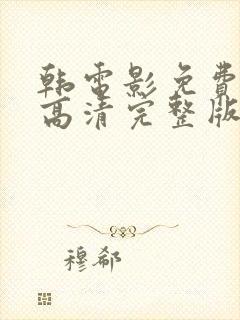 韩电影免费
高清完整版
穆郗